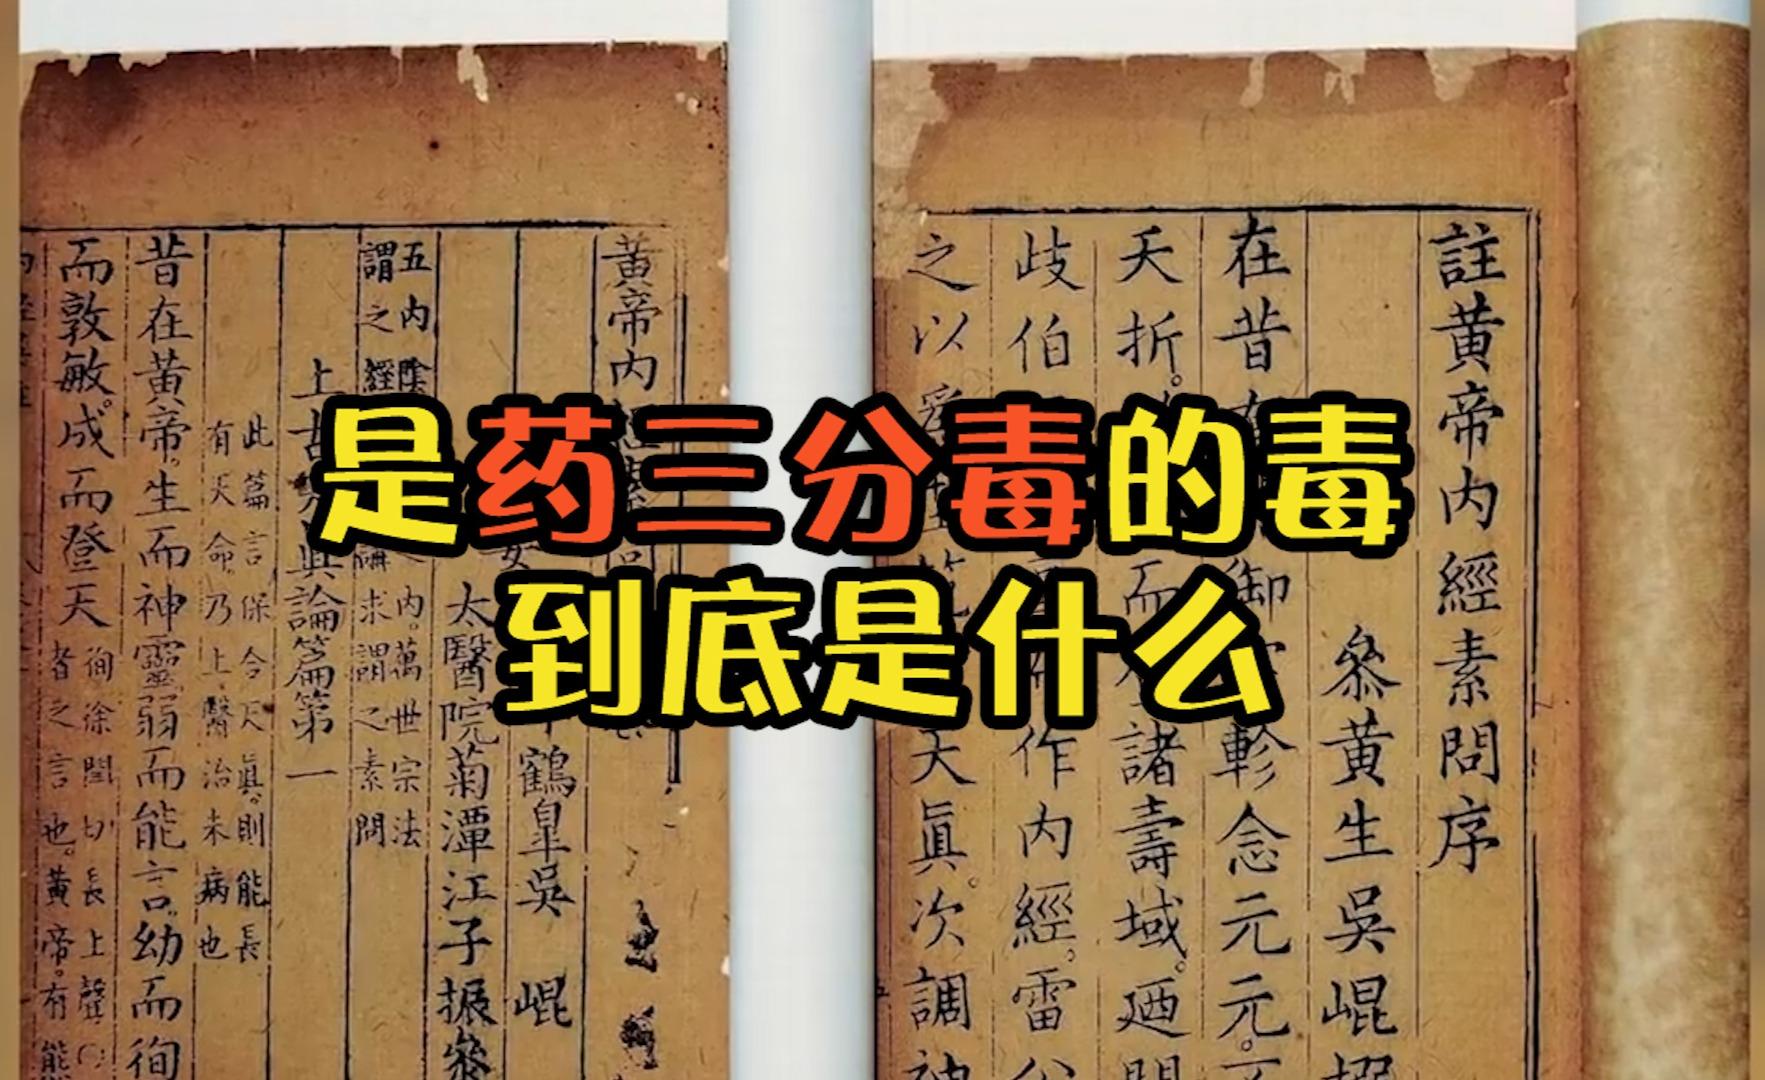 是药三分毒的毒
到底是什么
註黄帝内經素問序
叅黄生吳崐
在昔
軫念元元
夭折
諸壽域迺
歧伯
作内經雷
之以
天真次調
黄帝内
鶴皐吳崐
太醫院菊潭江子振叅
五内陰
謂之經
内萬世宗法
求謂之素問
上古
論篇第一
此篇言保合天眞則能長
有天命乃上醫治未病也
昔在黄帝生而神靈弱而能言幼而徇
而敦敏成而登天
徇徐閏切長上聲
者之言也黄帝有熊